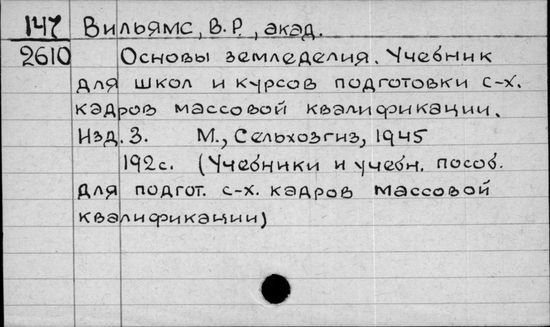 147 Вильямс, В.Р., акад.
2610 Основы земледелия. Учебник
для школ и курсов подготовки с-х.
кадров массовой квалификации.
Изд. 3. М., Сельхозгиз, 1945
192с. (Учебники и учебн. пособ.
для подгот. с-х. кадров массовой
квалификации)